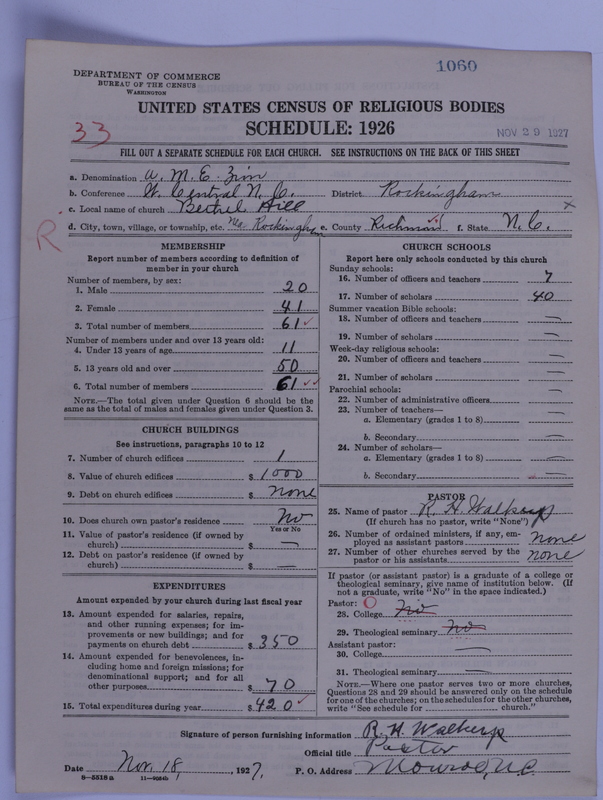 1060
DEPARTMENT OF COMMERCE
BUREAU OF THE CENSUS
WASHINGTON
UNITED STATES CENSUS OF RELIGIOUS BODIES
SCHEDULE: 1926
33
NOV 29 1927
FILL OUT A SEPARATE SCHEDULE FOR EACH CHURCH. SEE INSTRUCTIONS ON THE BACK OF THIS SHEET
a. Denomination A. M. E. Zion
b. Conference W. Central N. C. District Rockingham
c. Local name of church Bethel Hill x
d. City, town, village, or township, etc. Rockingham e. County Richmond f. State N. C.
R
MEMBERSHIP
Report number of members according to definition of member in your church
Number of members, by sex:
1. Male 20
2. Female 41
3. Total number of members 61 ✓
Number of members under and over 13 years old:
4. Under 13 years of age 11
5. 13 years old and over 50
6. Total number of members 61 ✓✓
NOTE.—The total given under Question 6 should be the same as the total of males and females given under Question 3.
CHURCH BUILDINGS
See instructions, paragraphs 10 to 12
7. Number of church edifices 1
8. Value of church edifices $ 1000
9. Debt on church edifices $ none
10. Does church own pastor's residence No
Yes or No
11. Value of pastor's residence (if owned by church) $ —
12. Debt on pastor's residence (if owned by church) $ —
EXPENDITURES
Amount expended by your church during last fiscal year
13. Amount expended for salaries, repairs, and other running expenses; for improvements or new buildings; and for payments on church debt $ 350
14. Amount expended for benevolences, including home and foreign missions; for denominational support; and for all other purposes $ 70
15. Total expenditures during year $ 420 ✓
CHURCH SCHOOLS
Report here only schools conducted by this church
Sunday schools:
16. Number of officers and teachers 7
17. Number of scholars 40
Summer vacation Bible schools:
18. Number of officers and teachers —
19. Number of scholars —
Week-day religious schools:
20. Number of officers and teachers —
21. Number of scholars —
Parochial schools:
22. Number of administrative officers —
23. Number of teachers—
a. Elementary (grades 1 to 8) —
b. Secondary —
24. Number of scholars—
a. Elementary (grades 1 to 8) —
b. Secondary —
PASTOR
25. Name of pastor R. H. Walkup
(If church has no pastor, write "None")
26. Number of ordained ministers, if any, employed as assistant pastors none
27. Number of other churches served by the pastor or his assistants none
If pastor (or assistant pastor) is a graduate of a college or theological seminary, give name of institution below. (If not a graduate, write "No" in the space indicated.)
Pastor: O
28. College No
29. Theological seminary No
Assistant pastor: —
30. College
31. Theological seminary —
NOTE.—Where one pastor serves two or more churches, Questions 28 and 29 should be answered only on the schedule for one of the churches; on the schedules for the other churches, write "See schedule for church."
Signature of person furnishing information R. H. Walkup
Official title Pastor
Date Nov. 18, 1927. P. O. Address Monroe, N.C.
8—5518a 11—9054b